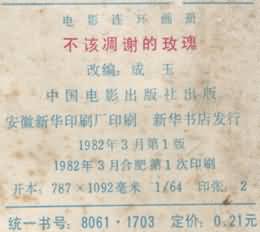 电影连环画册
不该凋谢的玫瑰
改编：成 玉
中国电影出版社出版
安徽新华印刷厂印刷 新华书店发行
1982年3月第1版
1982年3月合肥第1次印刷
开本：787×1092毫米 1/64 印张：2
统一书号：8061·1703 定价：0.21元